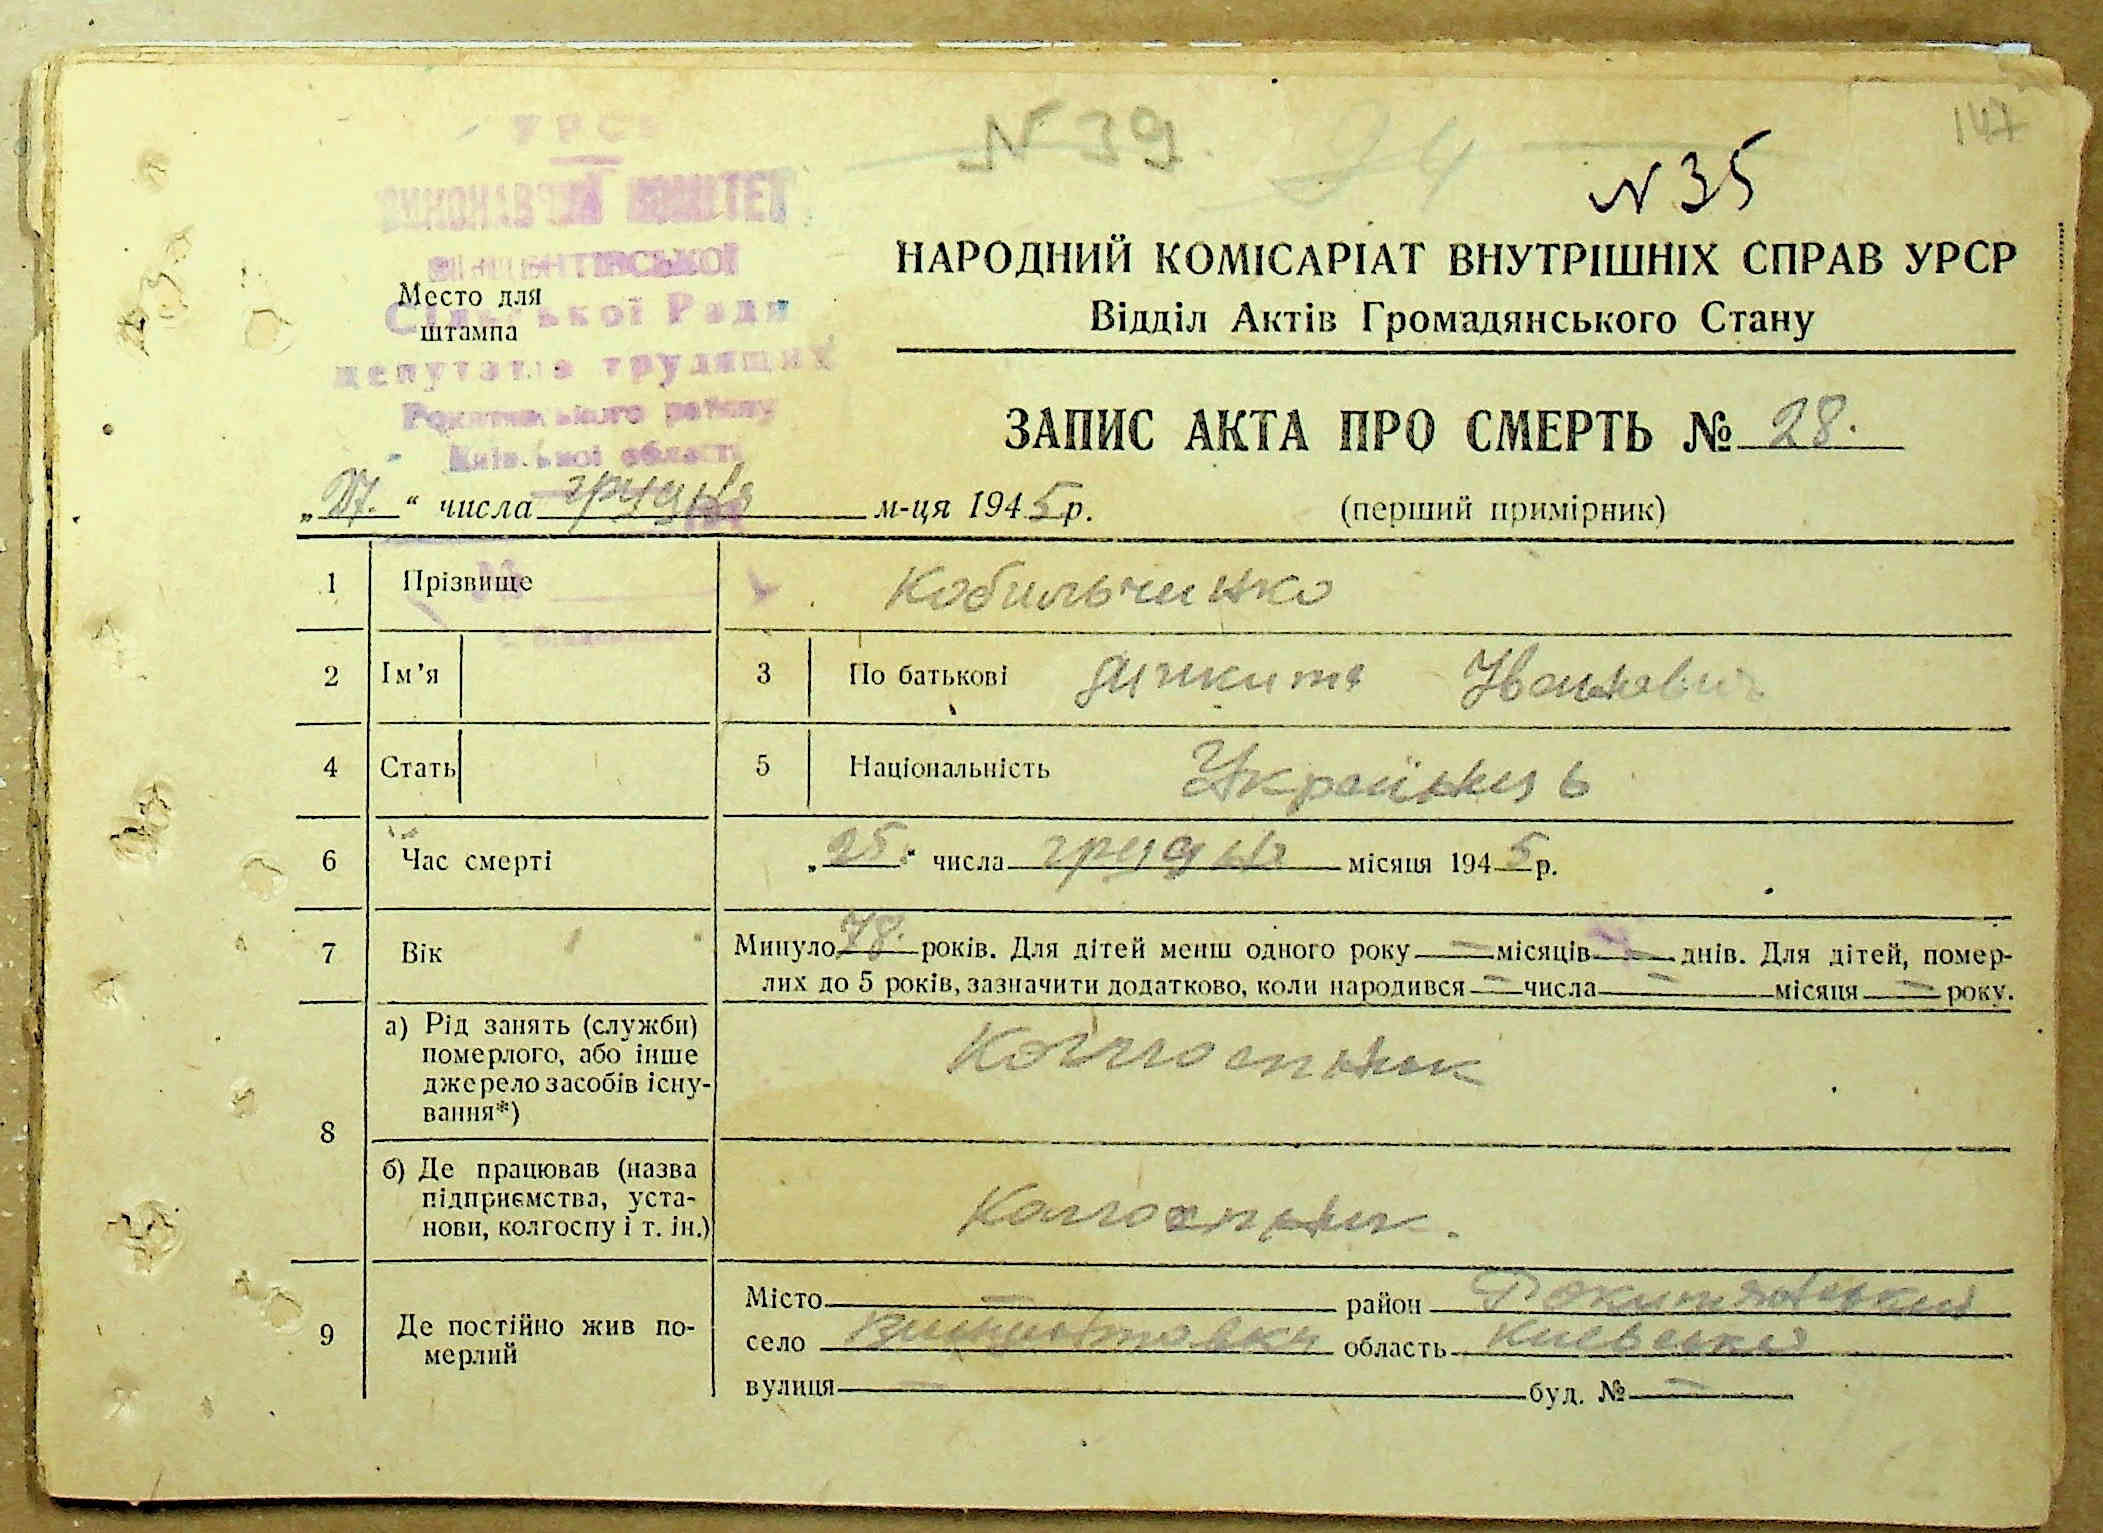 147
N 39
24
N 35
УРСР
ВИКОНАВЧИЙ КОМІТЕТ
Сільської Ради
депутатів трудящих
Рокитнянського району
Київської області
Место для
штампа
НАРОДНИЙ КОМІСАРІАТ ВНУТРІШНІХ СПРАВ УРСР
Відділ Актів Громадянського Стану
ЗАПИС АКТА ПРО СМЕРТЬ № 28.
„27.“ числа грудня м-ця 1945 р.
(перший примірник)
1 Прізвище Кобильченко
2 Ім'я 3 По батькові Микита Іванович
4 Стать 5 Національність
6 Час смерті „25.“ числа грудня місяця 1945 р.
7 Вік Минуло 78. років. Для дітей менш одного року — місяців — днів. Для дітей, помер-
лих до 5 років, зазначити додатково, коли народився — числа — місяця — року.
8 а) Рід занять (служби)
померлого, або інше
джерело засобів існу-
вання*)
Колгоспник
б) Де працював (назва
підприємства, уста-
нови, колгоспу і т. ін.)
Колгоспник.
9 Де постійно жив по-
мерлий
Місто — район Рокитнянський
село область Київська
вулиця — буд. № —